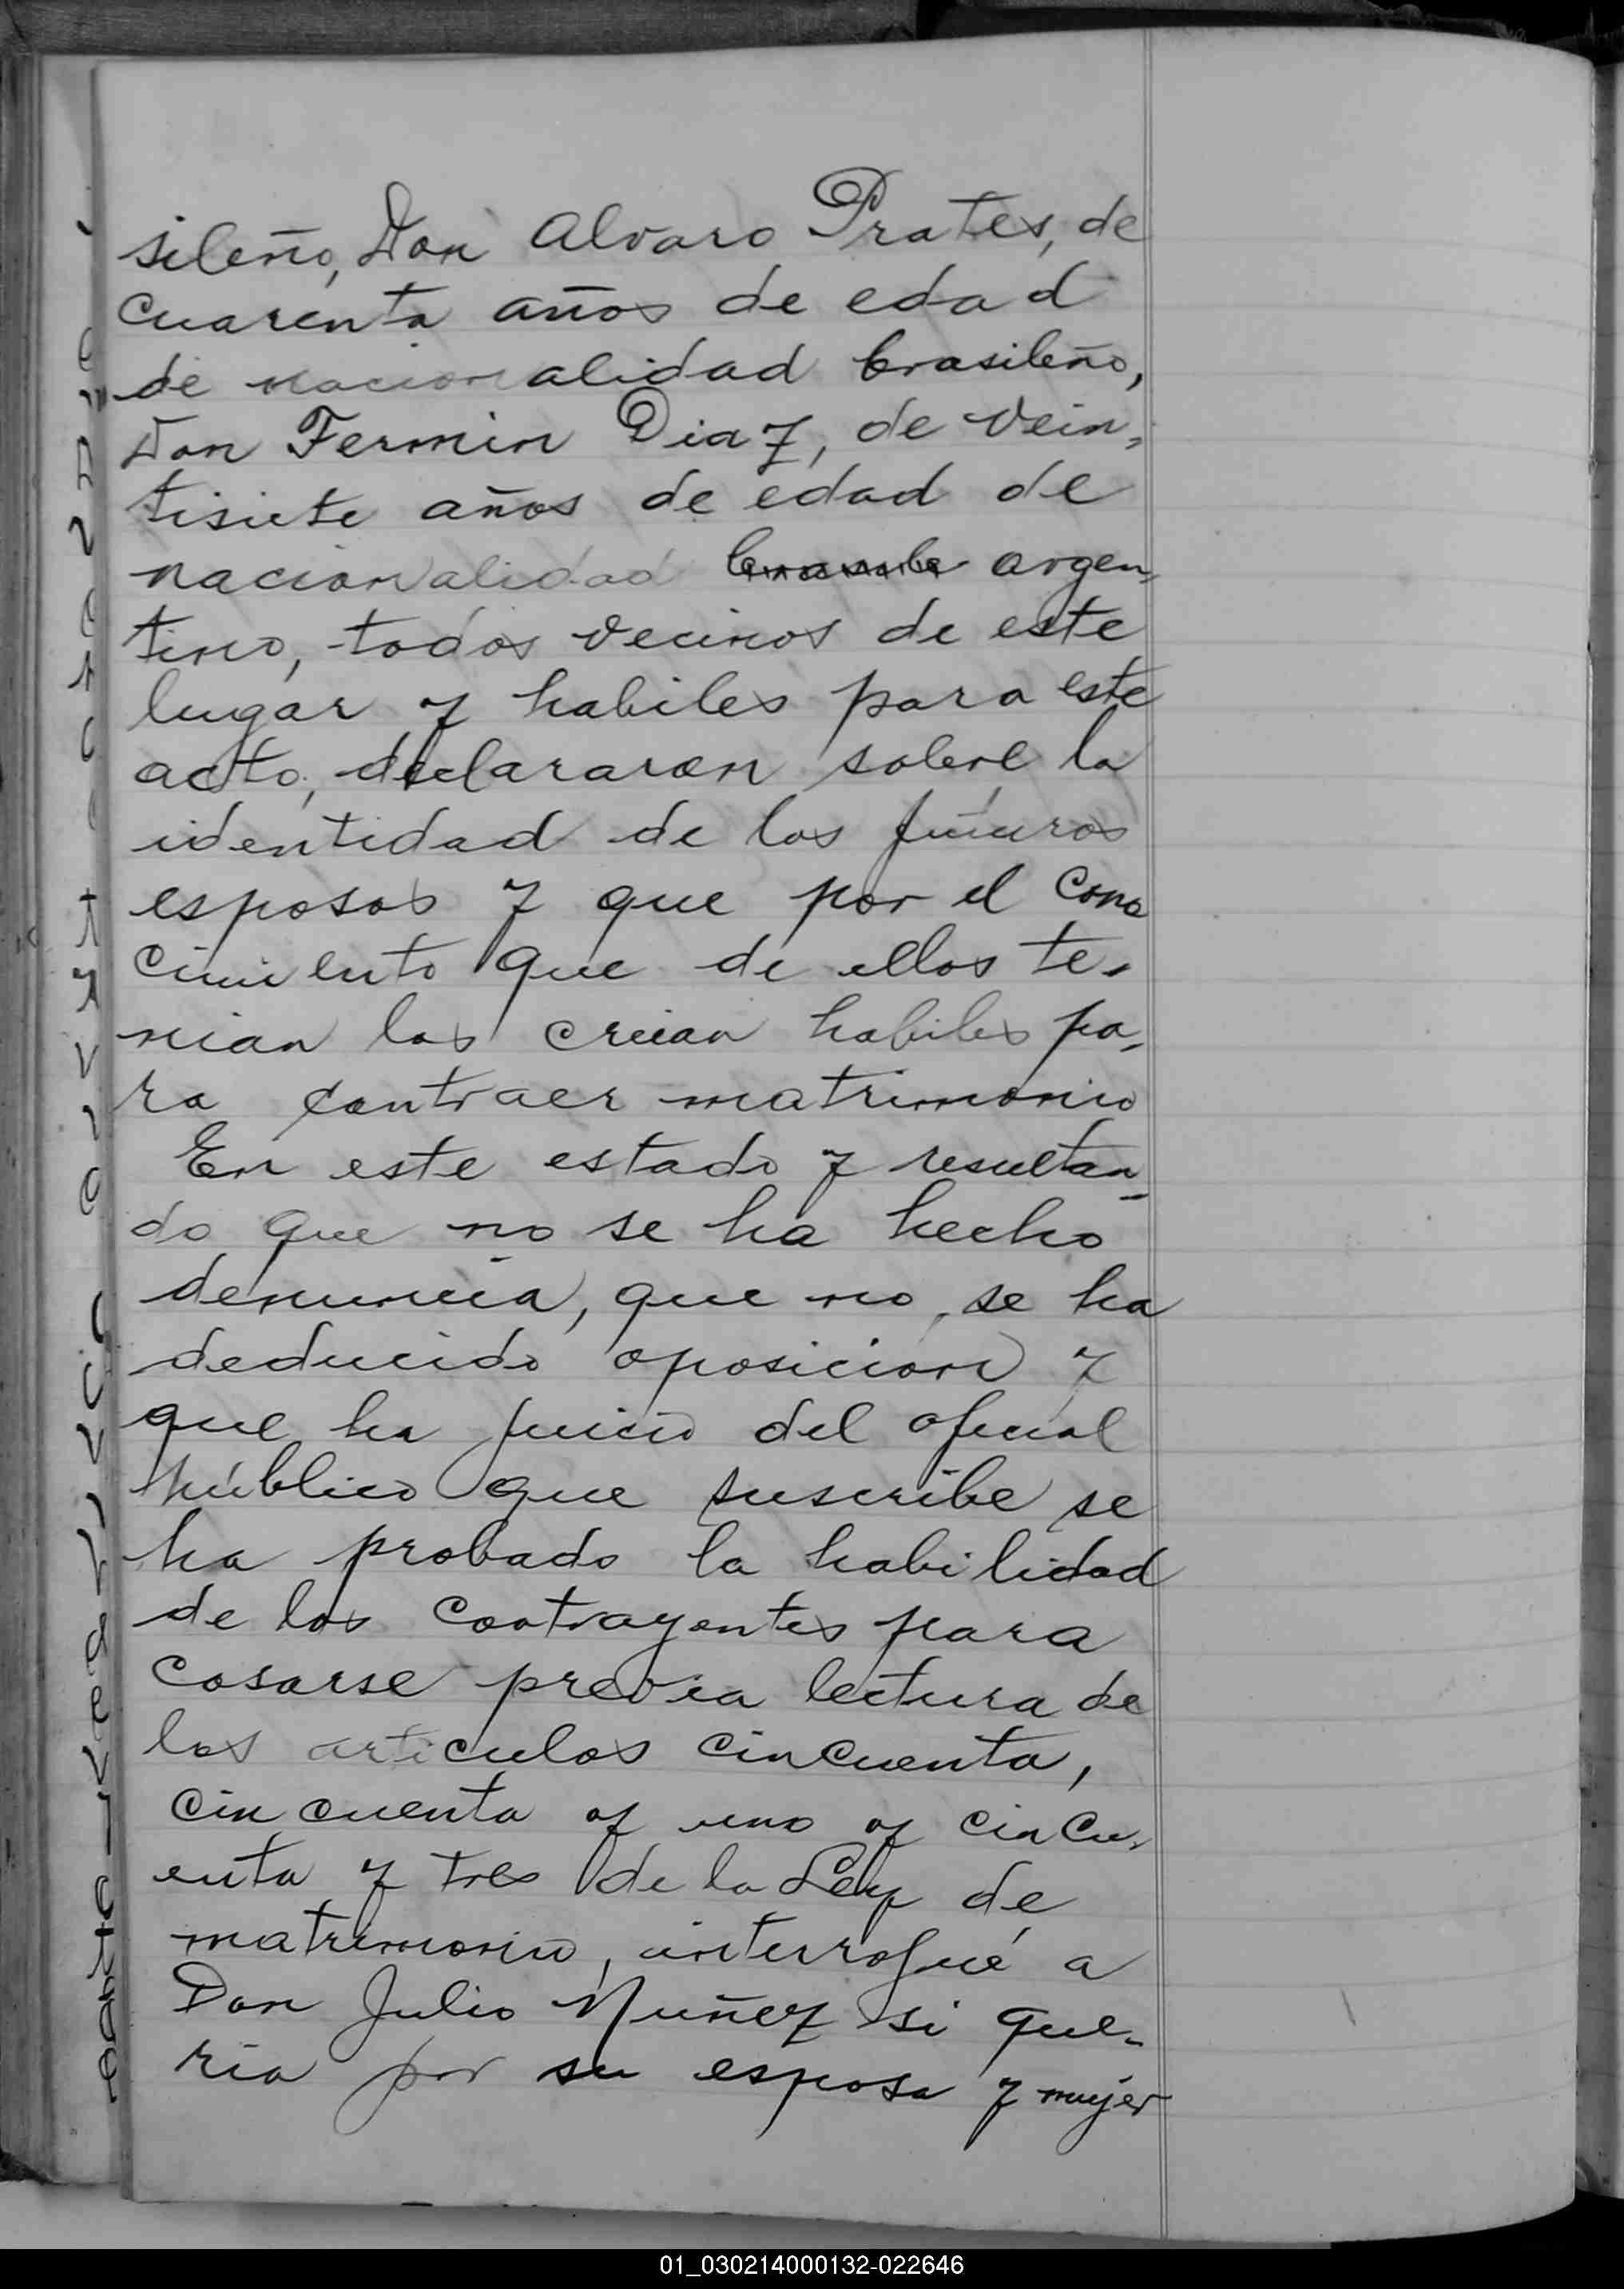 sileño, Don Alvaro Prates, de
cuarenta años de edad
de nacionalidad brasileño,
Don Fermin Diaz, de vein-
tisiete años de edad de
nacionalidad argen-
tino, todos vecinos de este
lugar y habiles para este
acto, declararon sobre la
identidad de los fuuros
esposos y que por el cono
cimiento que de ellos te-
nian los creian habiles pa-
ra contraer matrimonio
En este estado y resultan-
do que no se ha hecho
denuncia, que no, se ha
deducido oposicion y
que ha juicio del oficial
público que suscribe se
ha probado la habilidad
de los contrayentes para
casarse previa lectura de
los articulos cincuenta,
cincuenta y uno y cincu-
enta y tres de la Ley de
matrimonio, interrogué a
Don Julio Nuñez si que-
ria por su esposa y mujer
01_030214000132-022646